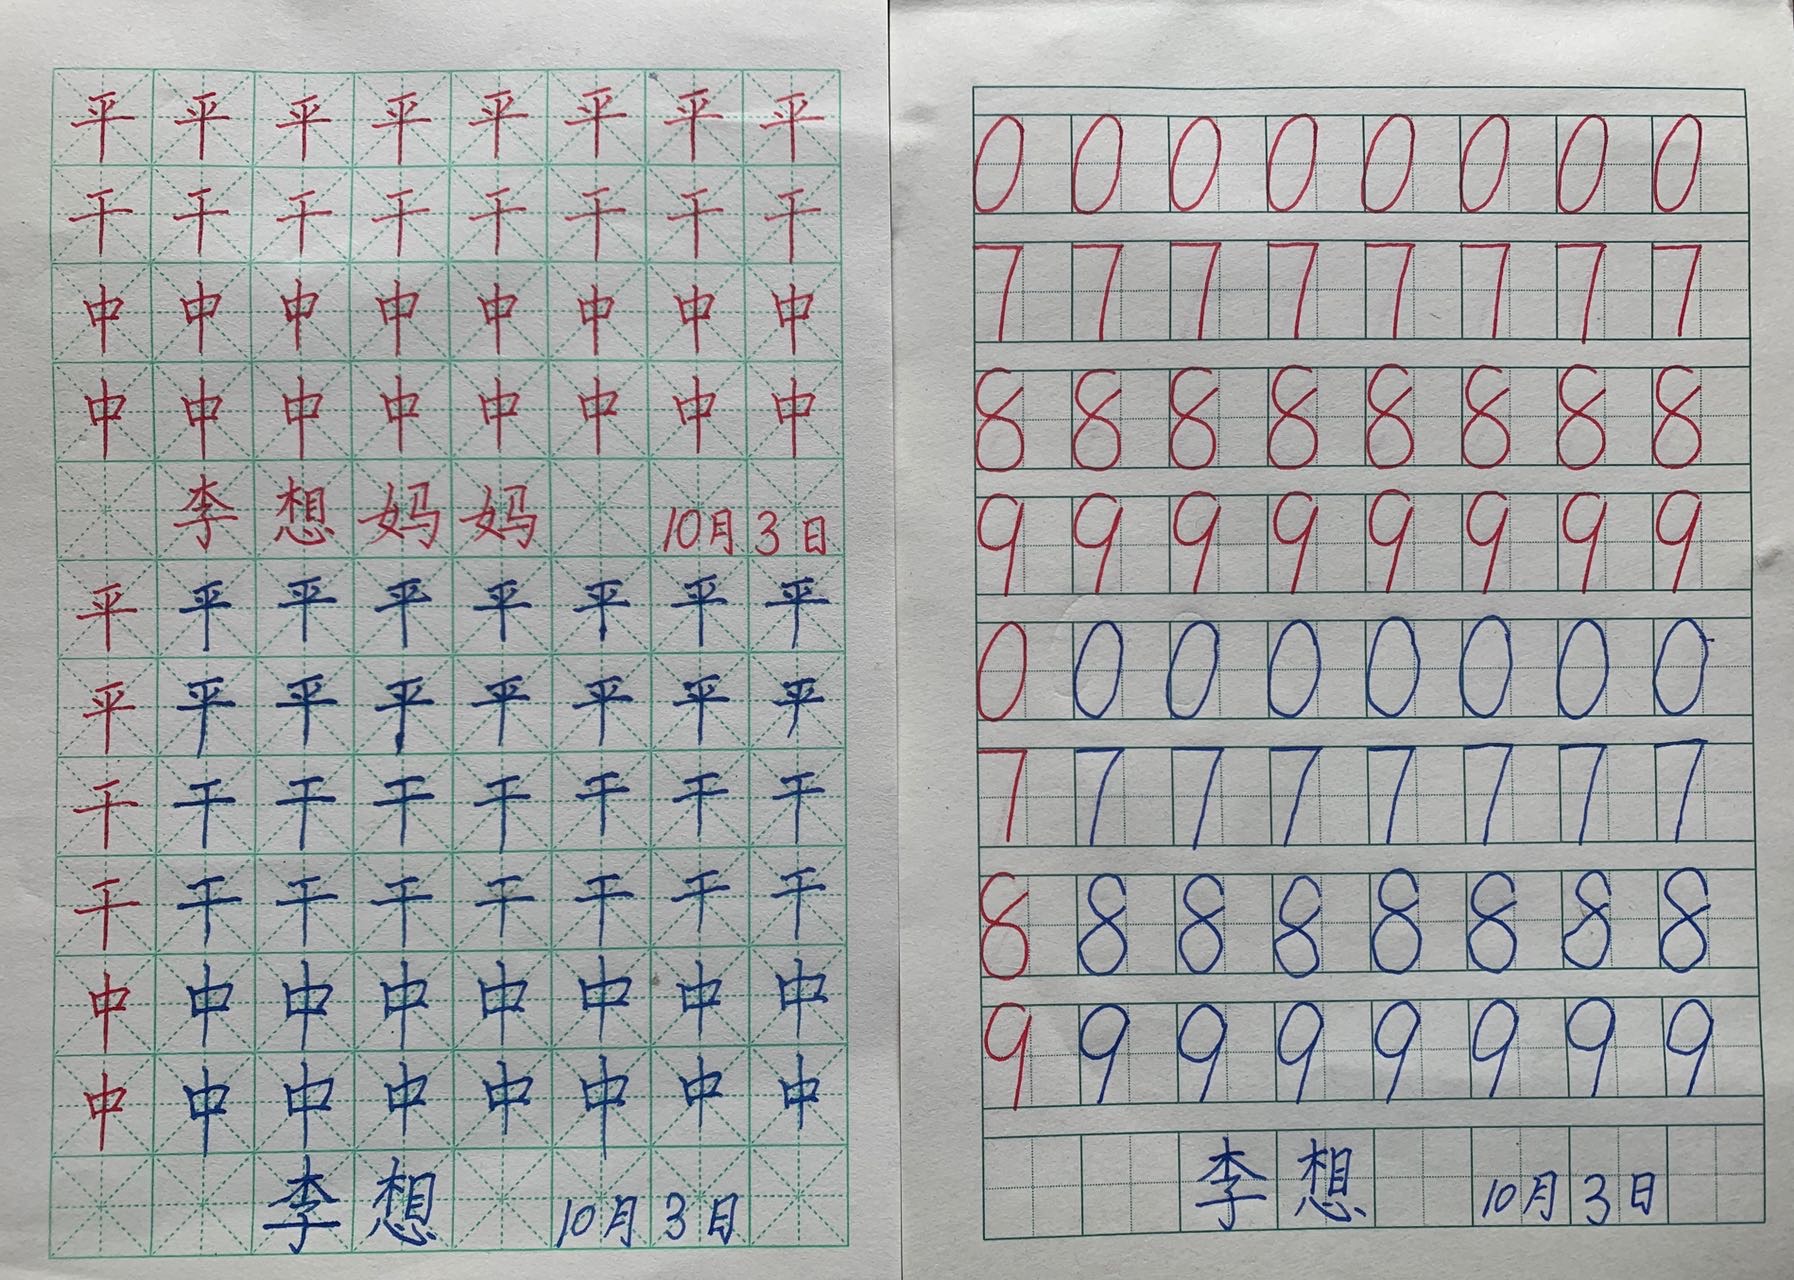 平平平平平平平平
干干干干干干干干
中中中中中中中中
中中中中中中中中
李想妈妈 10月3日
平平平平平平平平
平平平平平平平平
干干干干干干干干
干干干干干干干干
中中中中中中中中
中中中中中中中中
李想 10月3日
0 0 0 0 0 0 0 0
7 7 7 7 7 7 7 7
8 8 8 8 8 8 8 8
9 9 9 9 9 9 9 9
0 0 0 0 0 0 0 0
7 7 7 7 7 7 7 7
8 8 8 8 8 8 8 8
9 9 9 9 9 9 9 9
李想 10月3日